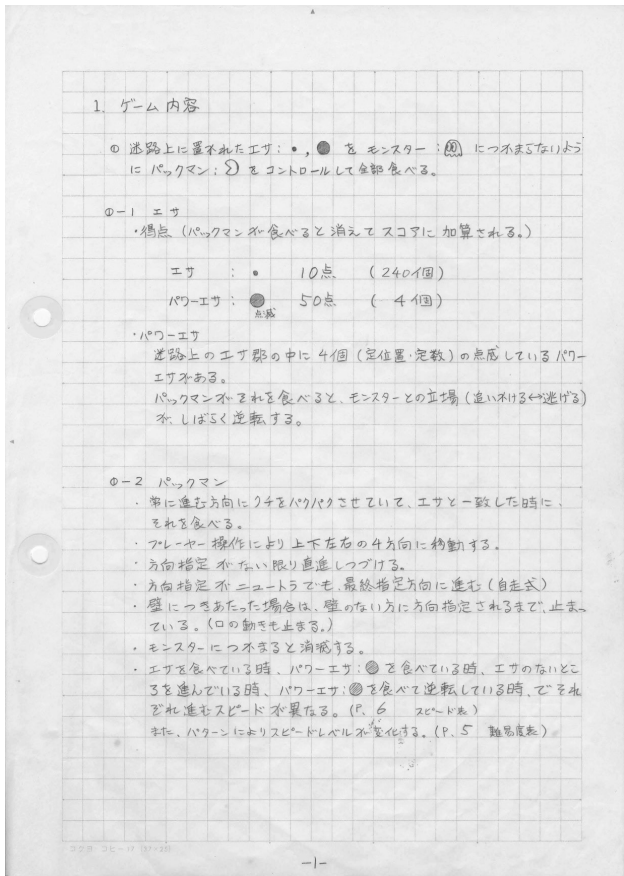 1. ゲーム内容
① 迷路上に置かれたエサ:・,● を モンスター: につかまらないよう
に パックマン: をコントロールして全部食べる。
①-1 エサ
・得点 (パックマンが食べると消えてスコアに加算される。)
エサ : ・ 10点 (240個)
パワーエサ : ● 50点 ( 4個)
点滅
・パワーエサ
迷路上のエサ郡の中に4個(定位置・定数)の点滅しているパワー
エサがある。
パックマンがそれを食べると、モンスターとの立場(追いかける↔逃げる)
が、しばらく逆転する。
①-2 パックマン
・常に進む方向にクチをパクパクさせていて、エサと一致した時に、
それを食べる。
・プレーヤー操作により上下左右の4方向に移動する。
・方向指定がない限り直進しつづける。
・方向指定がニュートラでも、最終指定方向に進む(自走式)
・壁につきあたった場合は、壁のない方に方向指定されるまで、止まっ
ている。(口の動きも止まる。)
・モンスターにつかまると消滅する。
・エサを食べている時、パワーエサ:● を食べている時、エサのないとこ
ろを進んでいる時、パワーエサ:● を食べて逆転している時、でそれ
ぞれ進むスピードが異なる。(P. 6 スピード表)
また、パターンによりスピードレベルが変化する。(P. 5 難易度表)
-1-